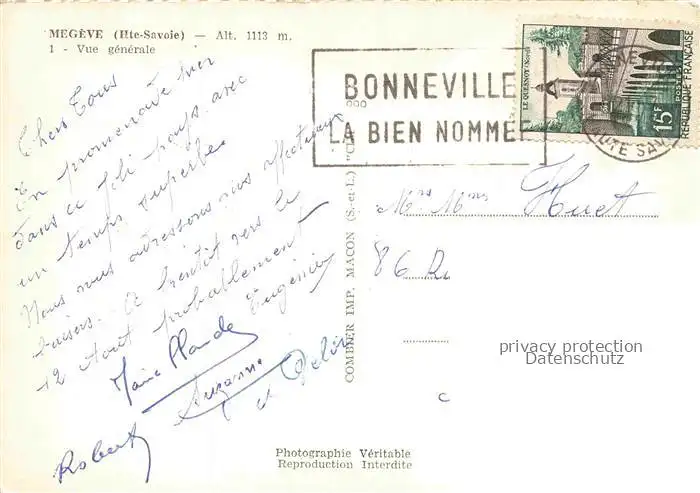 MEGÈVE (Hte-Savoie) — Alt. 1113 m.
1 - Vue générale
BONNEVILLE
LA BIEN NOMMEE
LE QUESNOY (Nord)
15F
POSTES
REPUBLIQUE FRANÇAISE
HUTE SAV
Chers Tous
En promenade hier
dans ce joli pays avec
un temps superbe.
Nous vous adressons nos affectueux
baisers. A bientôt vers le
12 Août probablement
Eugénie
Marie Claude
Suzanne
Robert
Mrs Mmes Huet
86 Ru
c
COMBIER IMP. MACON (S.-et-L.) "C
privacy protection
Datenschutz
Photographie Véritable
Reproduction Interdite